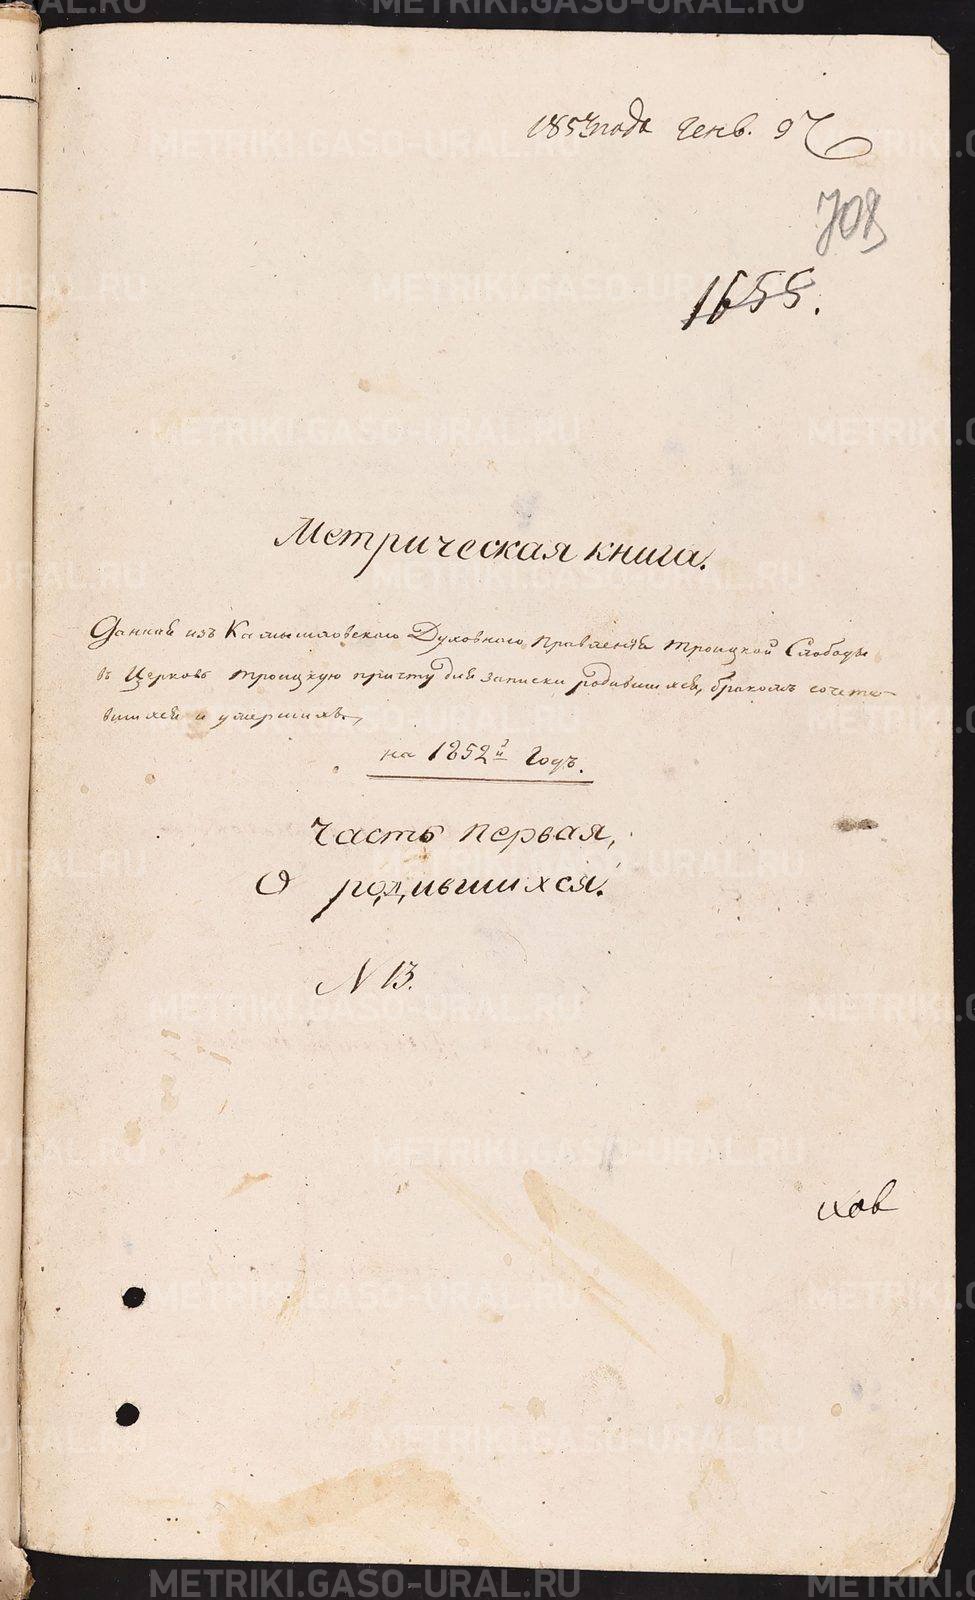 1853 года Генв. 9
708
1655.
Метрическая книга.
Данная изъ Камышловскаго Духовнаго Правленія Троицкой Слободы
въ Церковь Троицкую причту для записки родившихся, бракомъ сочета-
вшихся и умершихъ,
на 1852й Годъ.
Часть первая,
О родившихся.
N 13.
METRIKI.GASO-URAL.RU